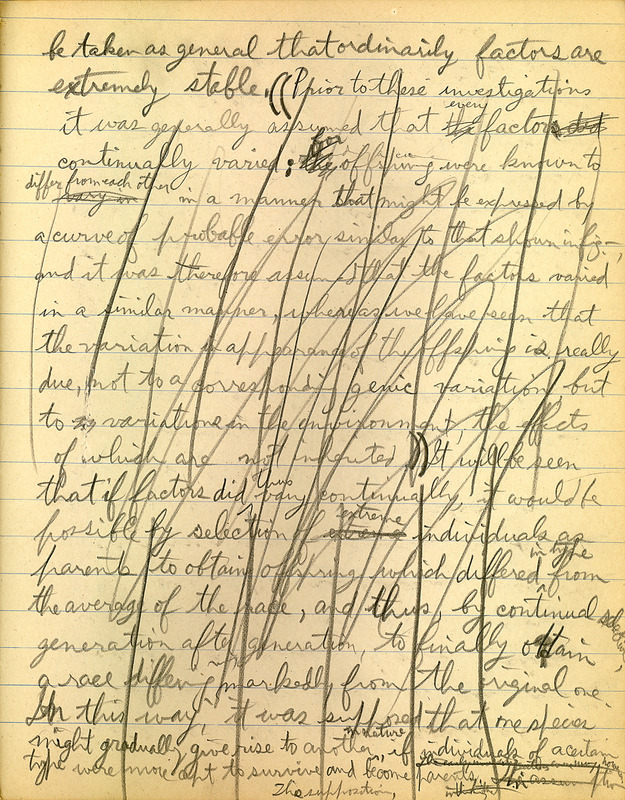 be taken as general that ordinarily factors are
extremely stable. ((Prior to these investigations
every
it was generally assumed that the factors did
for
continually varied; the offspring were known to
differ from each other
vary in in a manner that might be expressed by
a curve of probable error similar to that shown in fig —,
and it was therefore assumed that the factors varied
in a similar manner, whereas we have seen that
the variation in appearance of the offspring is really
due, not to a corresponding genic variation, but
to variations in the environment, the effects
of which are not inherited.)) It will be seen
thus
that if factors did vary continually, it would be
extreme
possible by selection of extreme individuals as
in type
parents to obtain offspring which differed from
the average of the race, and thus, by continual selection,
generation after generation, to finally obtain
a race differing markedly from the original one.
In this way, it was supposed that one species
in nature
might gradually give rise to another, if individuals of a certain
type were more apt to survive and become parents.
The supposition,